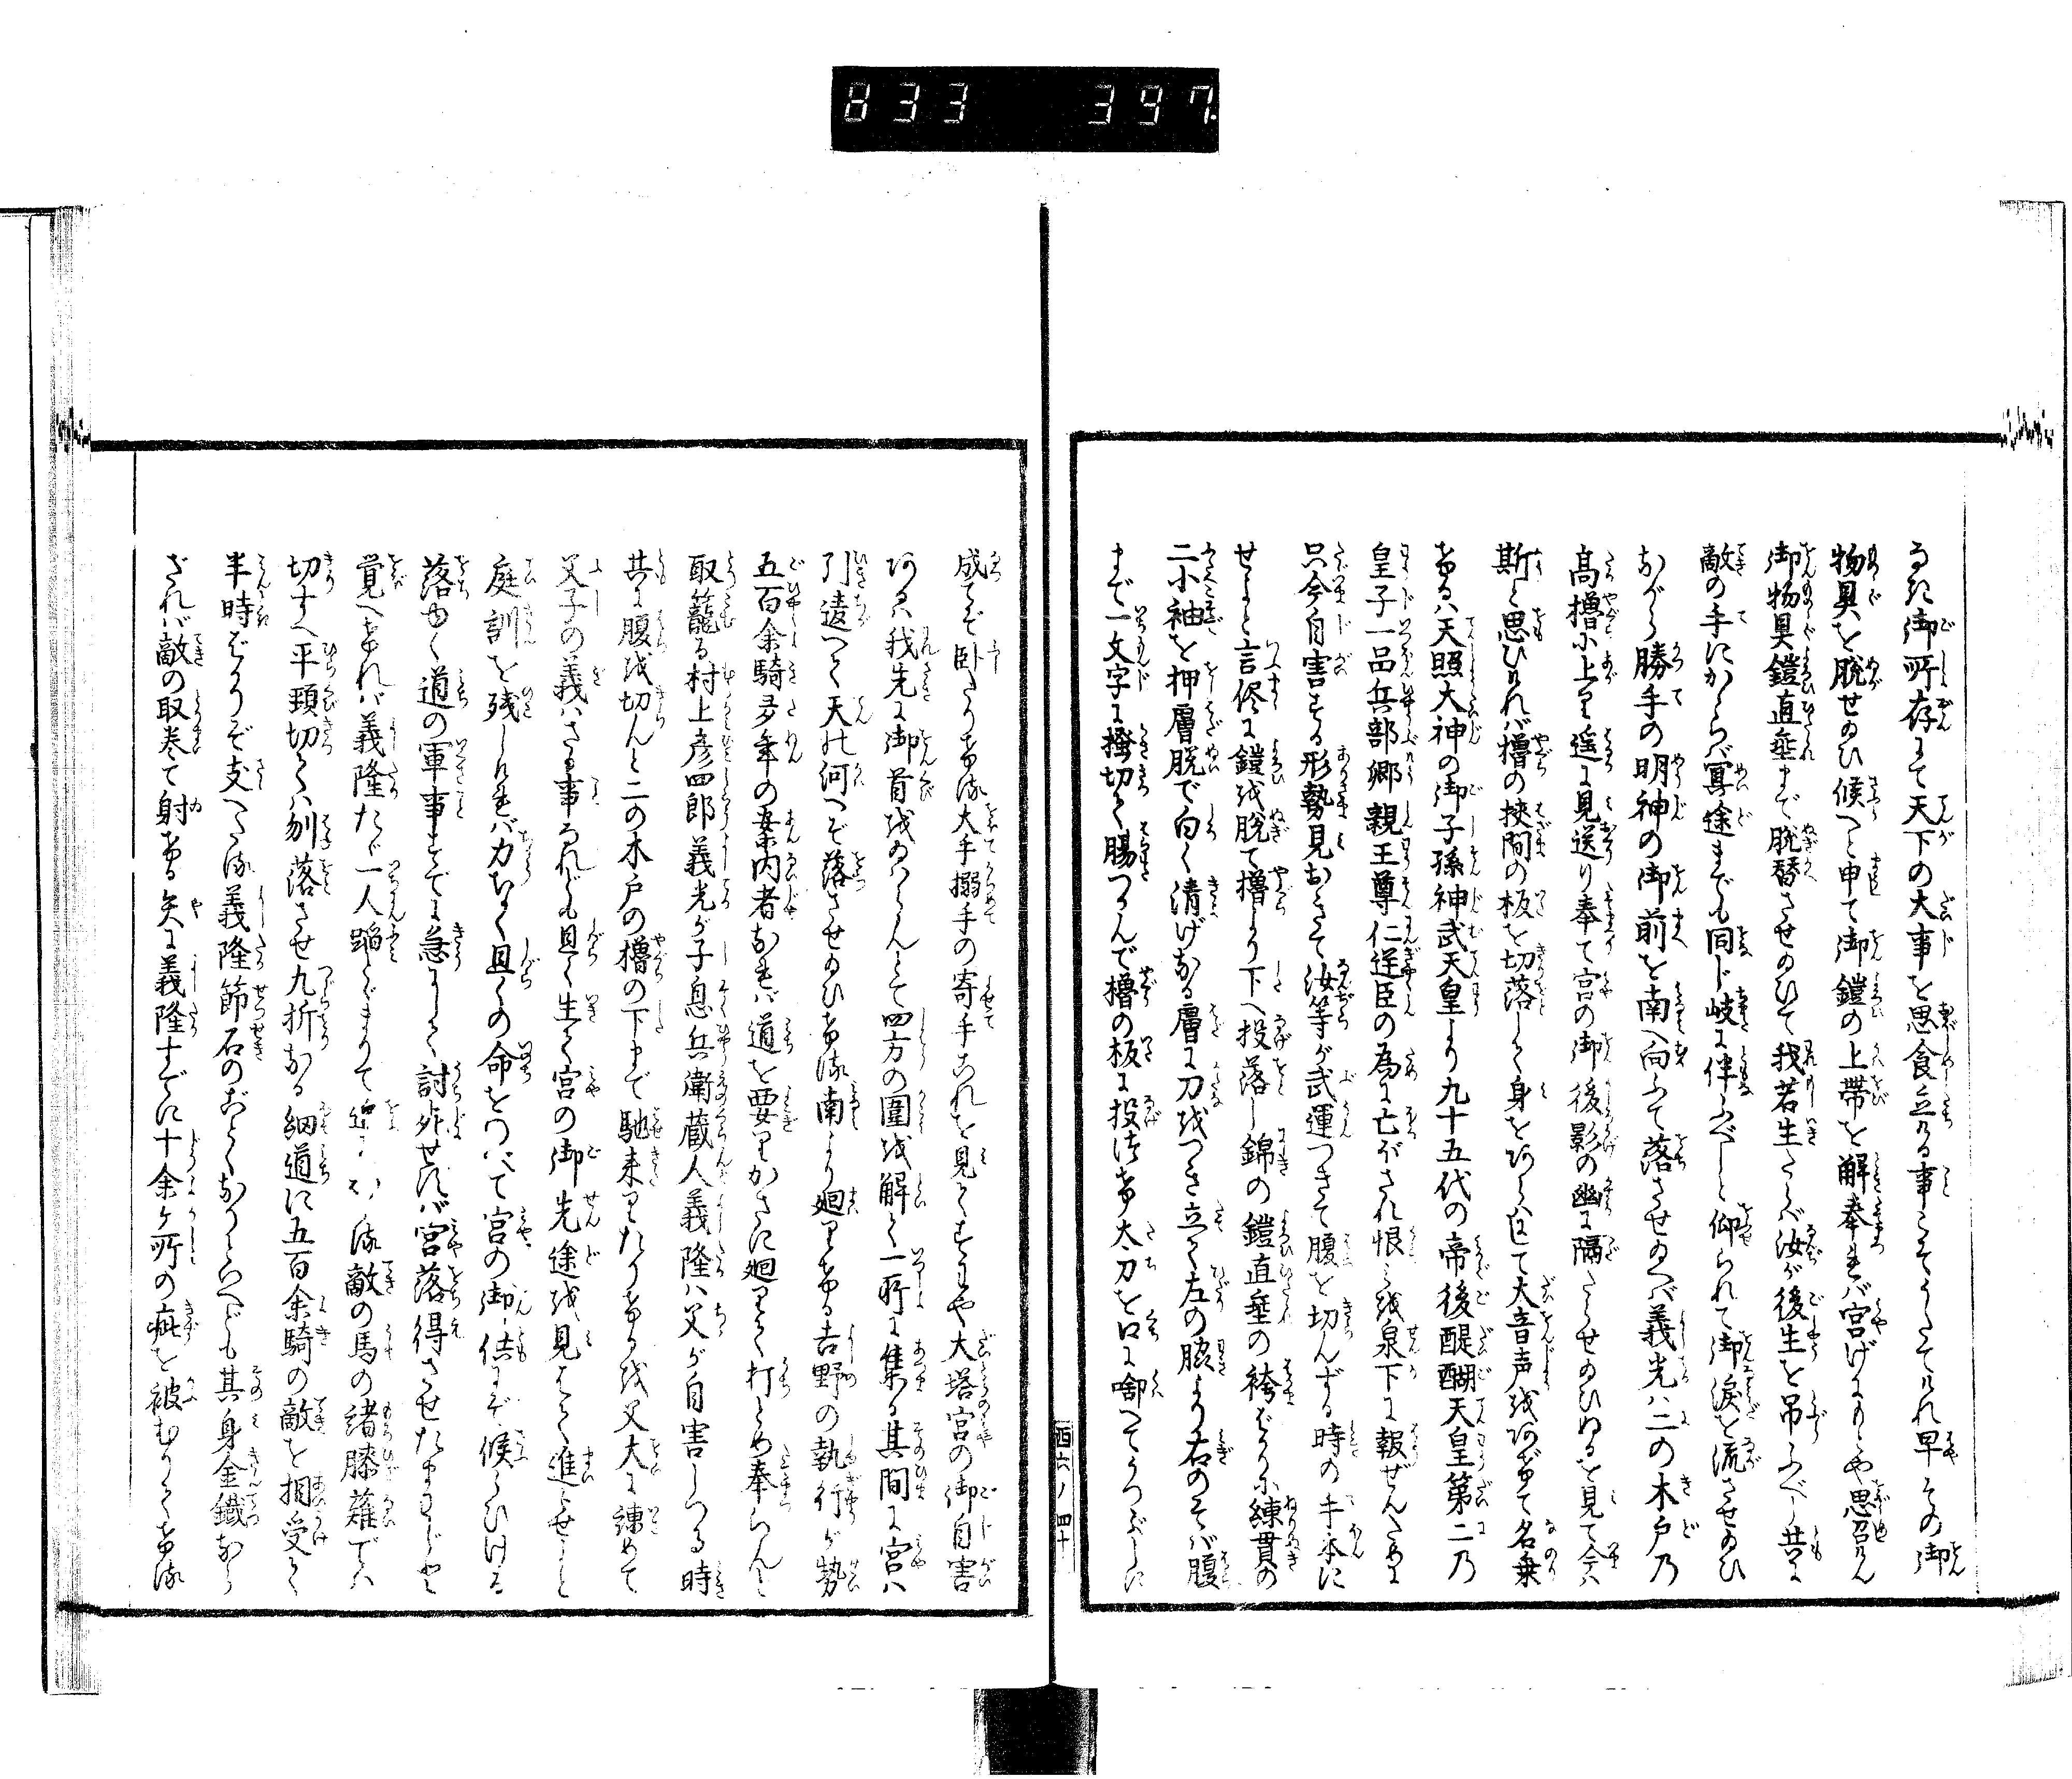 833 397
なき御所存にて天下の大事を思食立ける事こそうたてけれ早その御
物具を脱せ給ひ候へと申て御鎧の上帯を解奉れば宮げにもとや思召けん
御物具鎧直垂まで脱替させ給ひて我若生たらば汝が後生を吊ふべし共に
敵の手にかゝらば冥途までも同じ岐に伴ふべしと仰られて御涙を流させ給ひ
ながら勝手の明神の御前を南へ向ふて落させ給へば義光ハ二の木戸乃
高櫓に上り遥に見送り奉て宮の御後影の幽に隔たらせ給ひぬるを見て今ハ
斯と思ひければ櫓の挾間の板を切落して身をあらはして大音声をあげて名乗
けるハ天照大神の御子孫神武天皇より九十五代の帝後醍醐天皇第二乃
皇子一品兵部卿親王尊仁逆臣の為に亡がされ恨を泉下に報ぜんために
只今自害する形勢見おきて汝等が武運つきて腹を切んずる時の手本に
せよと言侭に鎧を脱て櫓より下へ投落し錦の鎧直垂の袴ばかりに練貫の
二小袖を押膚脱で白く清げなる膚に刀をつき立て左の脇より右のそば腹
まで一文字に掻切て腸つかんで櫓の板に投つけ太刀を口に啣へてうつぶしに
西六ノ四十
成てぞ臥たりける大手搦手の寄手これを見てすはや大塔宮の御自害
あるハ我先に御首を給はらんとて四方の圍を解て一所に集る其間に宮ハ
引違へて天の河へぞ落させ給ひける南より廻りける吉野の執行が勢
五百余騎多年の案内者なれば道を要りかさに廻りて打とめ奉らんと
取籠る村上彦四郎義光が子息兵衛蔵人義隆ハ父が自害しつる時
共に腹を切んと二の木戸の櫓の下まで馳来りたりけるを父大に諫めて
父子の義ハさる事なれども且く生て宮の御先途を見はて進らせよと
庭訓を残しければ力なく且くの命をのべて宮の御供にぞ候らひける
落ゆく道の軍事すでに急にして討死せずば宮落得させたまはじと
覚へければ義隆たゞ一人踏とゞまりて追てかゝる敵の馬の諸膝薙でハ
切すへ平頚切てハ刎落させ九折なる細道に五百余騎の敵を相受て
半時ばかりぞ支へたる義隆節石のごとくなりといへども其身金鐵なら
ざれば敵の取巻て射ける矢に義隆すでに十余ヶ所の疵を被むりてける